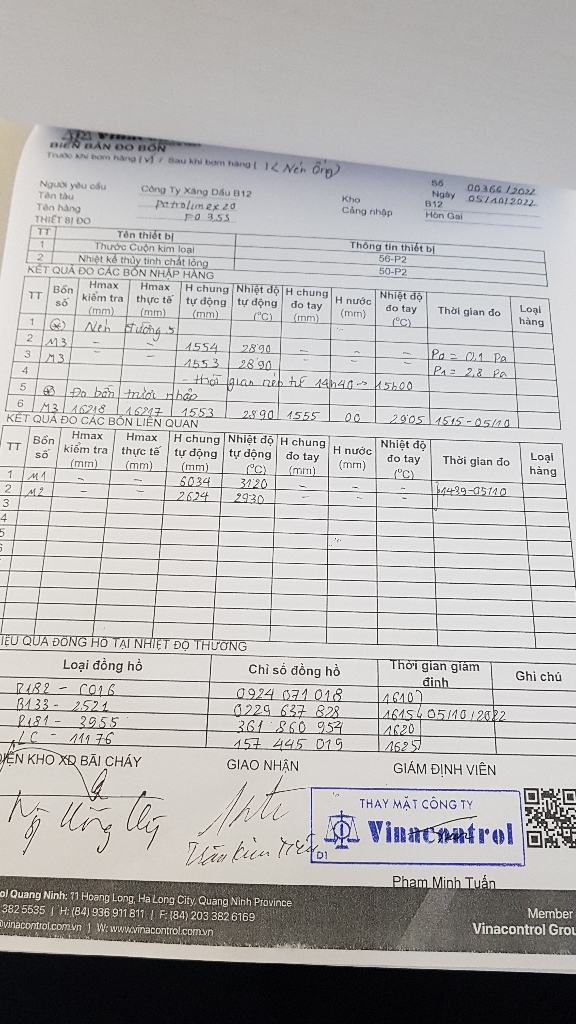 BIÊN BẢN ĐO BỒN
Trước khi bơm hàng [V] / Sau khi bơm hàng [ ] < Nén Ống)
Số 00366/2022
Người yêu cầu Công Ty Xăng Dầu B12 Kho Ngày 05/10/2022
Tên tàu Petrolimex 20 B12
Tên hàng FO 3,5S Cảng nhập Hòn Gai
THIẾT BỊ ĐO
TT Tên thiết bị Thông tin thiết bị
1 Thước Cuộn kim loại 56-P2
2 Nhiệt kế thủy tinh chất lỏng 50-P2
KẾT QUẢ ĐO CÁC BỒN NHẬP HÀNG
TT Bồn số Hmax kiểm tra (mm) Hmax thực tế (mm) H chung tự động (mm) Nhiệt độ tự động (°C) H chung đo tay (mm) H nước (mm) Nhiệt độ đo tay (°C) Thời gian đo Loại hàng
1 Nén đường
2 M3 - - 1554 2890 - - - P0 = 0,1 Pa
3 M3 - - 1553 2890 - - - P1 = 2,8 Pa
4 - thời gian nén từ 14h40 -> 15h00
5 Đo bồn trước nhập
6 M3 16218 16217 1553 2890 1555 00 2905 1515-05/10
KẾT QUẢ ĐO CÁC BỒN LIÊN QUAN
TT Bồn số Hmax kiểm tra (mm) Hmax thực tế (mm) H chung tự động (mm) Nhiệt độ tự động (°C) H chung đo tay (mm) H nước (mm) Nhiệt độ đo tay (°C) Thời gian đo Loại hàng
1 M1 - - 6034 3120 - - - 1439-05/10
2 M2 - - 2624 2930 - - -
3
4
5
HIỆU QUẢ ĐỒNG HỒ TẠI NHIỆT ĐỘ THƯỜNG
Loại đồng hồ Chỉ số đồng hồ Thời gian giám định Ghi chú
R182 - C016 0924 071 018 1610
B133 - 2521 0229 637 828 1615 05/10/2022
R181 - 3955 361 860 954 1620
LC - 11176 157 445 019 1625
DIỆN KHO XD BÃI CHÁY GIAO NHẬN GIÁM ĐỊNH VIÊN
THAY MẶT CÔNG TY
Vinacontrol
D1
Phạm Minh Tuấn
ol Quang Ninh: 11 Hoang Long, Ha Long City, Quang Ninh Province
382 5535 | H: (84) 936 911 811 | F: (84) 203 382 6169
@vinacontrol.com.vn | W: www.vinacontrol.com.vn
Member
Vinacontrol Grou